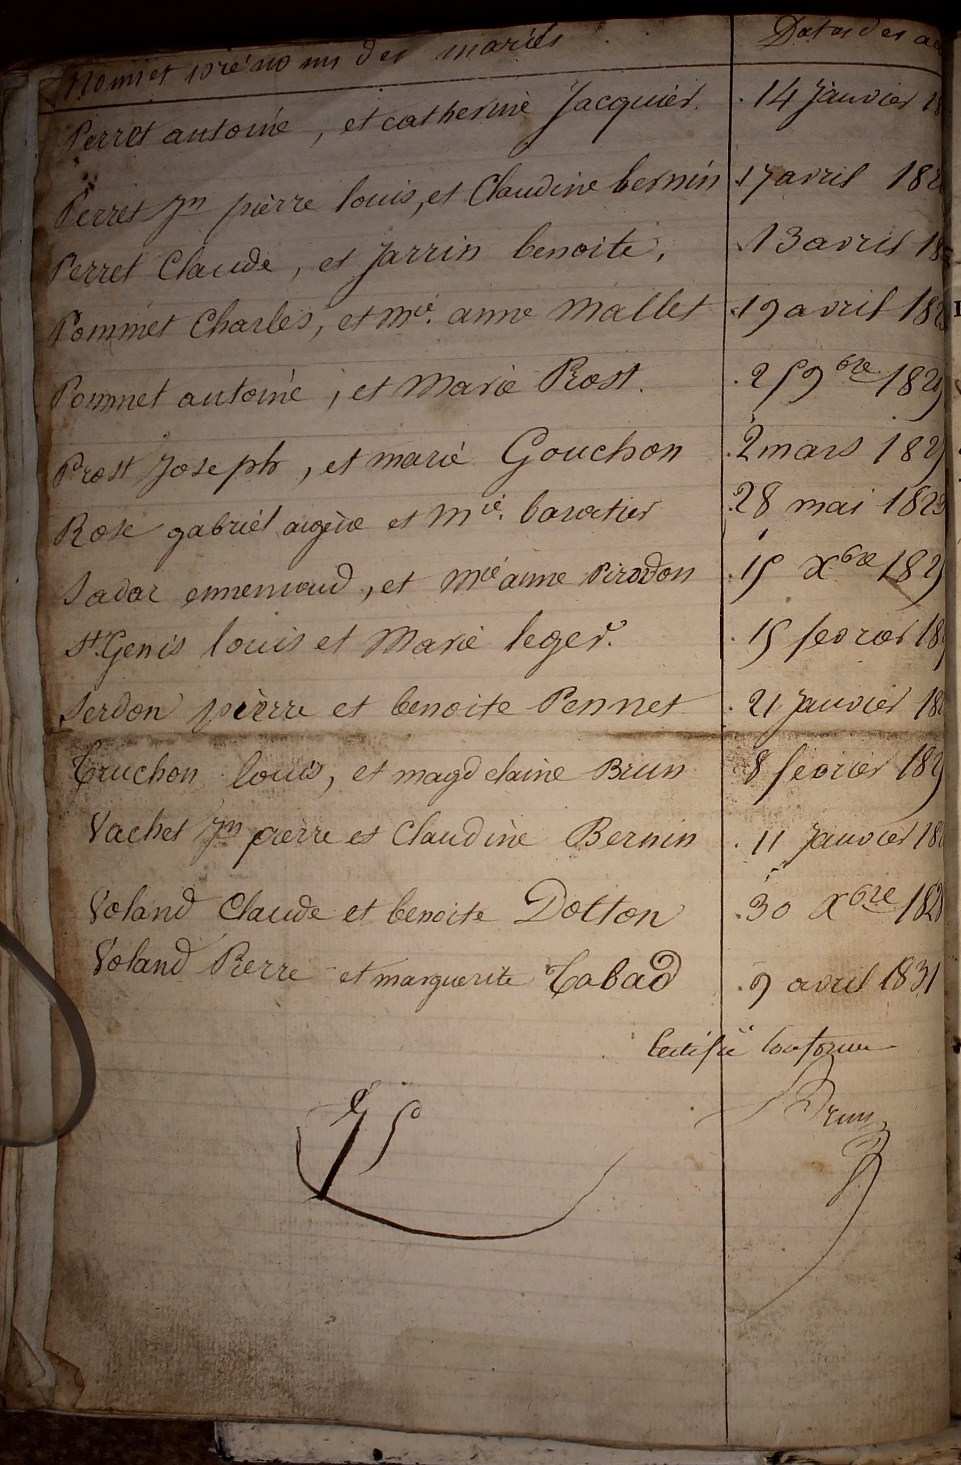 Noms et prénoms des mariés Dates des ac
Perret antoine, et catherine Jacquier. 14 Janvier 18
Perret Jn pierre louis, et Claudine bernin 17 avril 182
Perret Claude, et Jarrin benoite, 13 avril 18
Pommet Charles, et mie. anne mallet 19 avril 182
Pommet antoine, et Marie Rost. 25 9bre 1829
Prost Joseph, et marie Gouchon 2 mars 1829
Rose gabriel et mie. 28 mai 182
Sadar ennemond, et mie anne Pirodon 15 Xbre 1829
St. Genis louis et Marie leger. 15 fevrier 18
Serdon pierre et benoite Pennet 21 Janvier 18
Truchon louis, et magdelaine Brun 8 fevrier 1829
Vachet Jn pierre et Claudine Bernin 11 Janvier 18
Voland Claude et benoite Dotton 30 Xbre 1828
Voland Pierre et marguerite Tabad 9 avril 1831
Certifié Conforme
Brun